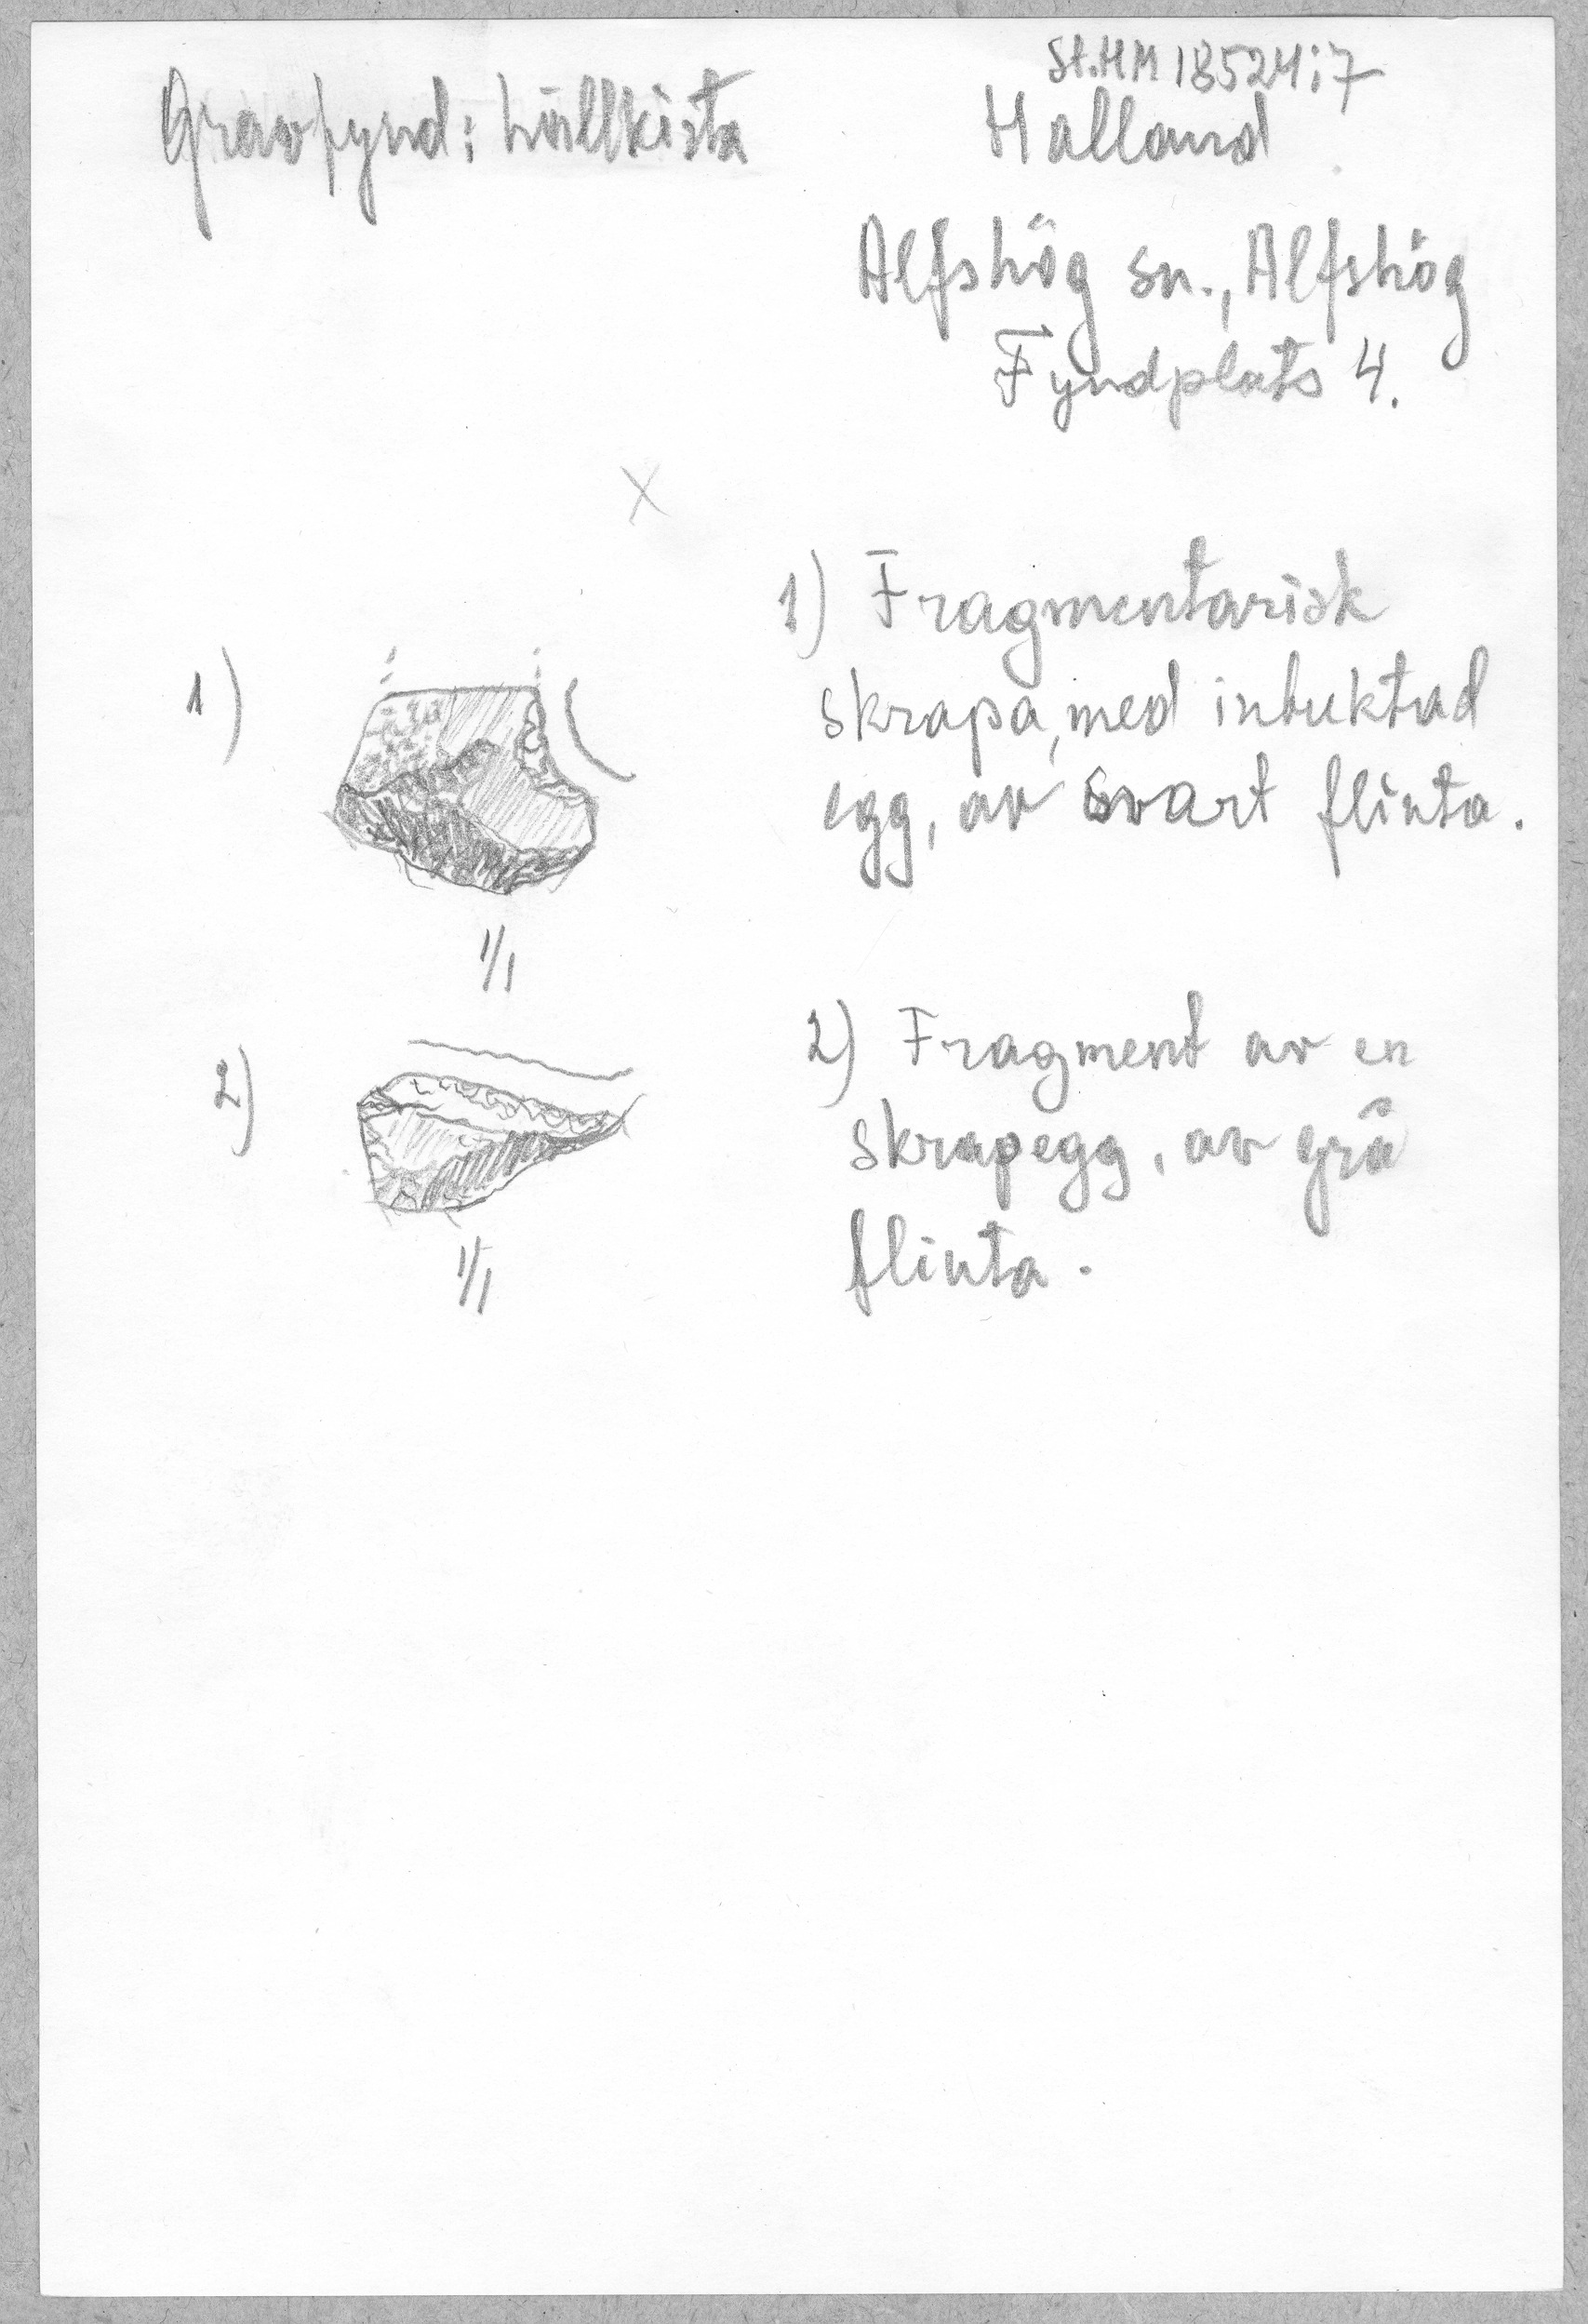 St.HM 18524:7
Gravfynd: hällkista
Halland
Alfshög sn., Alfshög
Fyndplats 4.
X
1) Fragmentarisk
skrapa, med inbuktad
egg, av svart flinta.
1)
1/1
2) Fragment av en
skrapegg, av grå
flinta.
2)
1/1